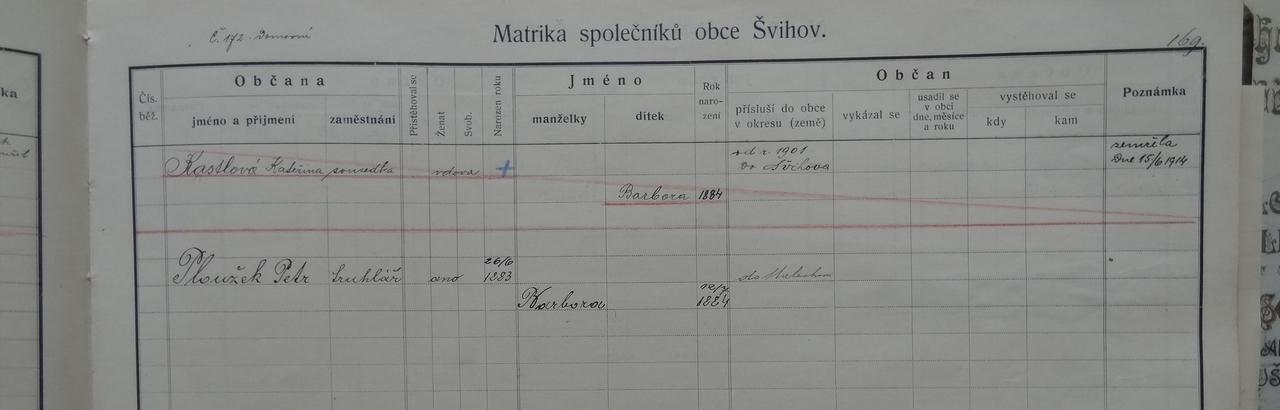 Č. 172 - Domovní
Matrika společníků obce Švihov.
169.
ka
Čís. běž.
Občana
jméno a přijmení
zaměstnání
Přistěhoval se
Ženat
Svob.
Narozen roku
Jméno
manželky
dítek
Rok naro-
zení
Občan
přísluší do obce
v okresu (země)
vykázal se
usadil se
v obci
dne, měsíce
a roku
vystěhoval se
kdy
kam
Poznámka
Kastlová Kateřina sousedka vdova +
od r. 1901
do Švihova
zemřela
Dne 15/6 1914
Barbora 1884
Ploužek Petr truhlář ano 26/6 1883
do
Barbora 1884